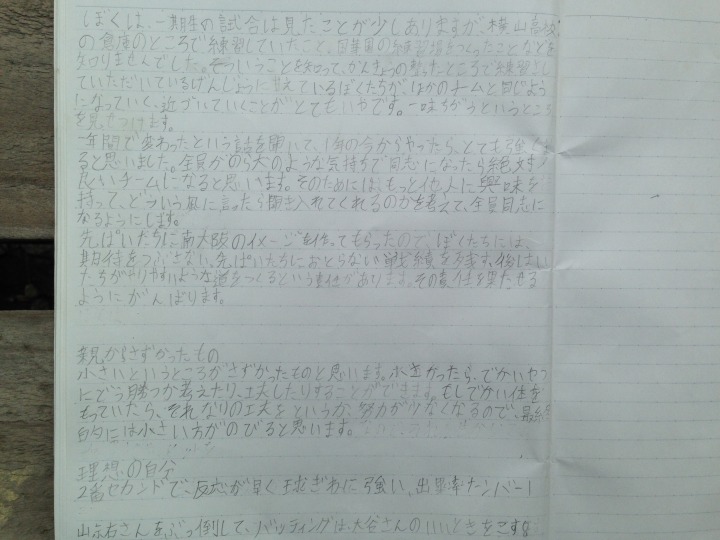 ぼくは、一期生の試合は見たことが少しありますが、横山高校
の倉庫のところで練習していたこと、練習場をつくったことなどを
知りませんでした。そういうことを知って、かんきょうの整ったところで練習をし
ていただいているげんじょうに甘えているぼくたちが、ほかのチームと同じよう
になっていく、近づいていくことがとてもいやです。一味ちがうというところ
を見せつけます。
一年間で変わったという話を聞いて、1年の今からやったら、とても強くな
ると思いました。全員がのら犬のような気持ちで同志になったら絶対
良いチームになると思います。そのためには、もっと他人に興味を
持って、どういう風に言ったら聞き入れてくれるのかを考えて、全員同志に
なるようにします。
先ぱいたちに南大阪のイメージを作ってもらったので、ぼくたちには、
期待をつぶさない、先ぱいたちにおとらない戦績を残す、後はい
たちが入りやすいような道をつくるという責任があります。その責任を果たせる
ようにがんばります。
親からさずかったもの
小さいというところがさずかったものと思います。小さかったら、でかいやつ
にどう勝つか考えたり、工夫したりすることができます。もしでかい体を
もっていたら、それなりの工夫をというか、努力が少なくなるので、最終
的には小さい方がのびると思います。
理想の自分
2番セカンドで、反応が早く球ぎわに強い、出塁率ナンバー1
さんをぶっ倒して、バッティングは、大谷さんのいいときをこす。